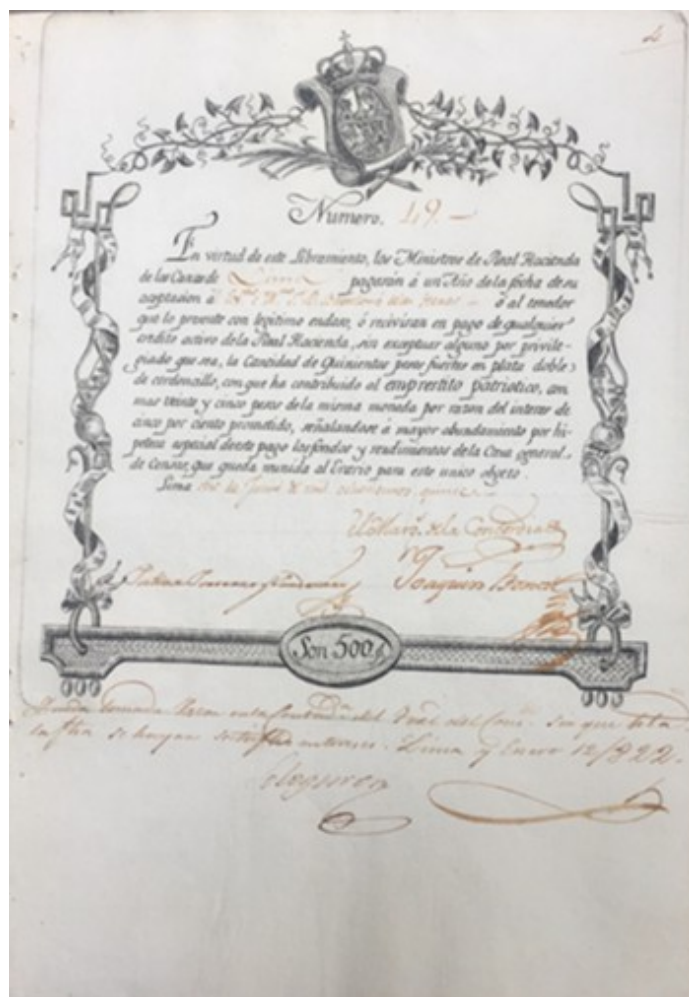 4
Numero. 49.
En virtud de este Libramiento, los Ministros de Real Hacienda
de las Caxas de Lima pagarán á un Año de la fecha de su
aceptacion á ó al tenedor
que lo presente con legitimo endoso, ó reciviran en pago de qualquier
credito activo de la Real Hacienda, sin exceptuar alguno por privile-
giado que sea, la Cantidad de Quinientos pesos fuertes en plata doble
de cordoncillo, con que ha contribuido al emprestito patriotico, con
mas veinte y cinco pesos de la misma moneda por razon del interes de
cinco por ciento prometido, señalandose á mayor abundamiento por hi-
poteca especial de este pago los fondos y rendimientos de la Caxa general
de Censos, que queda reunida al Erario para este unico objeto.
Lima de Junio de mil ochocientos quince
de la Concordia
Joaquin Bonet
Son 500 p
Queda tomada Razon en la del del que
la fha se hayan Lima y Enero 12/822.